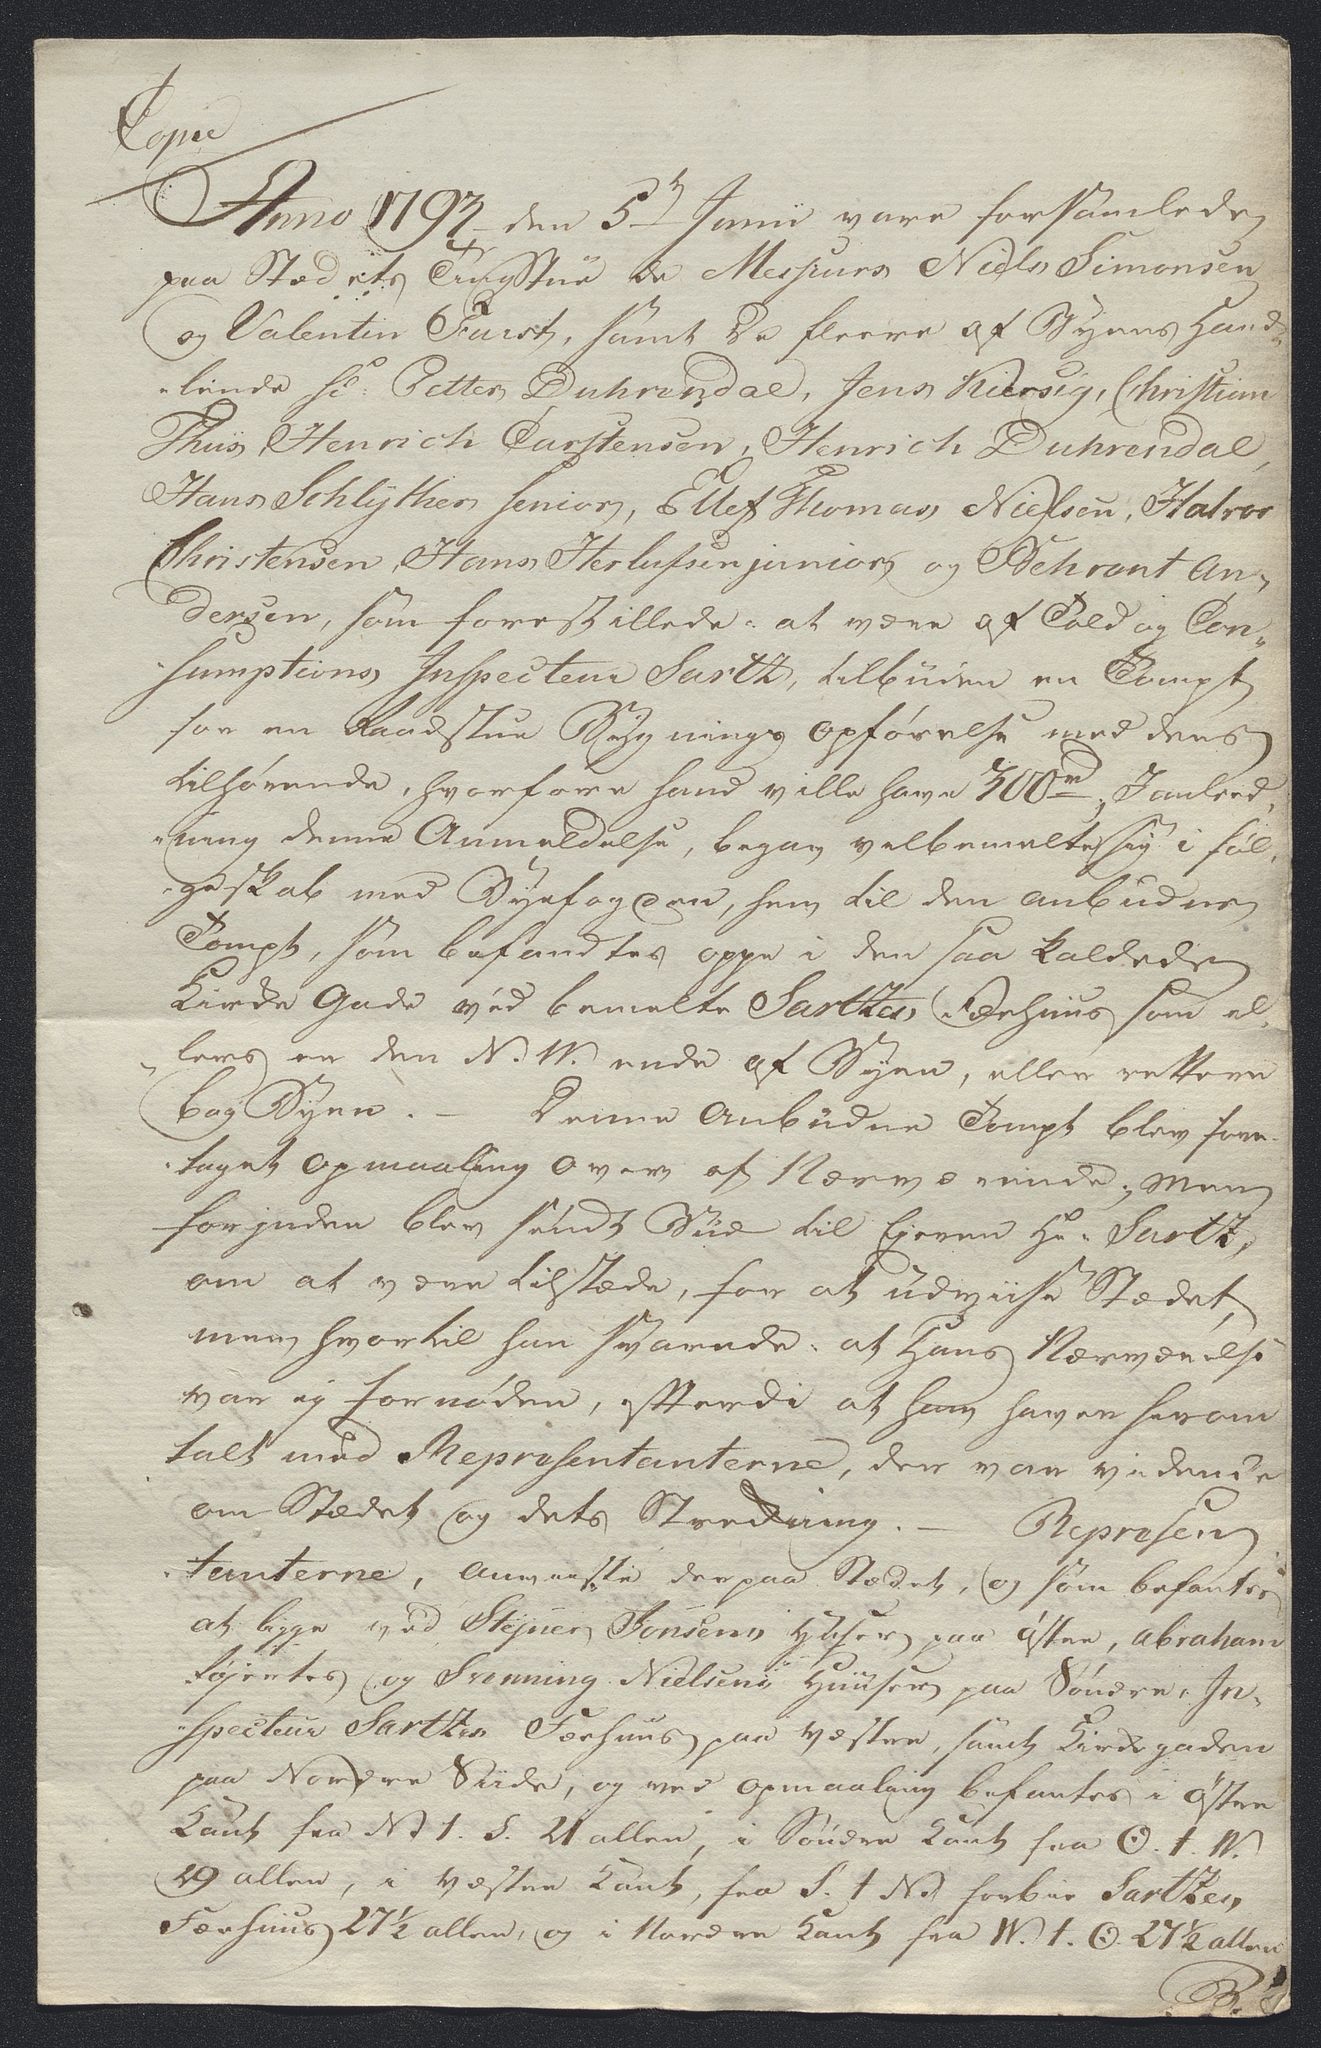 Copie
Anno 1793 den 5t Junii vare forsamlede
paa Stædets Tingstue de Messurs Niels Simonsen
og Valentin Furst, samt de fleere af Byens Hand-
-lende Sr. Petter Duhrendal, Jens Kiersig, Christian
Thiis, Henrich Carstensen, Henrich Duhrendal,
Hans Schlÿther senior, Ellef Thomas Nielsen, Halvor
Christensen, Hans Herlufsen junior og Behront An-
dersen, som forestillede: at være af Told og Con-
-sumptions Inspecteur Sartz, tilbuden en Tompt
for en Raadstue Bÿgnings opførelse med dens
tilhørende, hvorfore hand ville have 700rd. I anleed-
-ning denne Anmeldelse, begav velbemelte sig i føl-
-geskab med Byefogden, hen til den anbudne
Tompt, som befandtes oppe i den saa kaldede
Kirke Gade ved bemelte Sartzes Fæehuus som el-
-lers er den N. W. ende af Byen, eller rettere
bag Byen. — Denne Anbudne Tompt blev fore-
-taget opmaaling over af Nærværende; men
forinden blev sendt Bud til Ejeren Hr. Sartz,
om at være tilstæde, for at udviise Stædet,
men hvortil han svarede: at Hans Nærværelse
var ej fornøden, efterdi at han haver herom
talt med Repræsentanterne, der var vidende
om Stædet og dets Strekning. — Repræsen
-tanterne, anveiste derpaa Stædet, og som befantes
at ligge ved Stejner Jonsens Huser paa Østre, Abraham
Hjertes og Svenning Nielsens Huuser paa Søndre, In-
-specteur Sartzes Fæehuus paa Vestre, samt Kirkegaden
paa Nordre Siide, og ved opmaaling befantes i Østre
Kant fra N. t. S. 21 allen, i Søndre Kant fra O. t. W.
29 allen, i Vestre Kant, fra S. t N. forbie Sartzes
Fæehuus 27½ allen, og i Nordre Kant fra W. t. O. 27½ allen